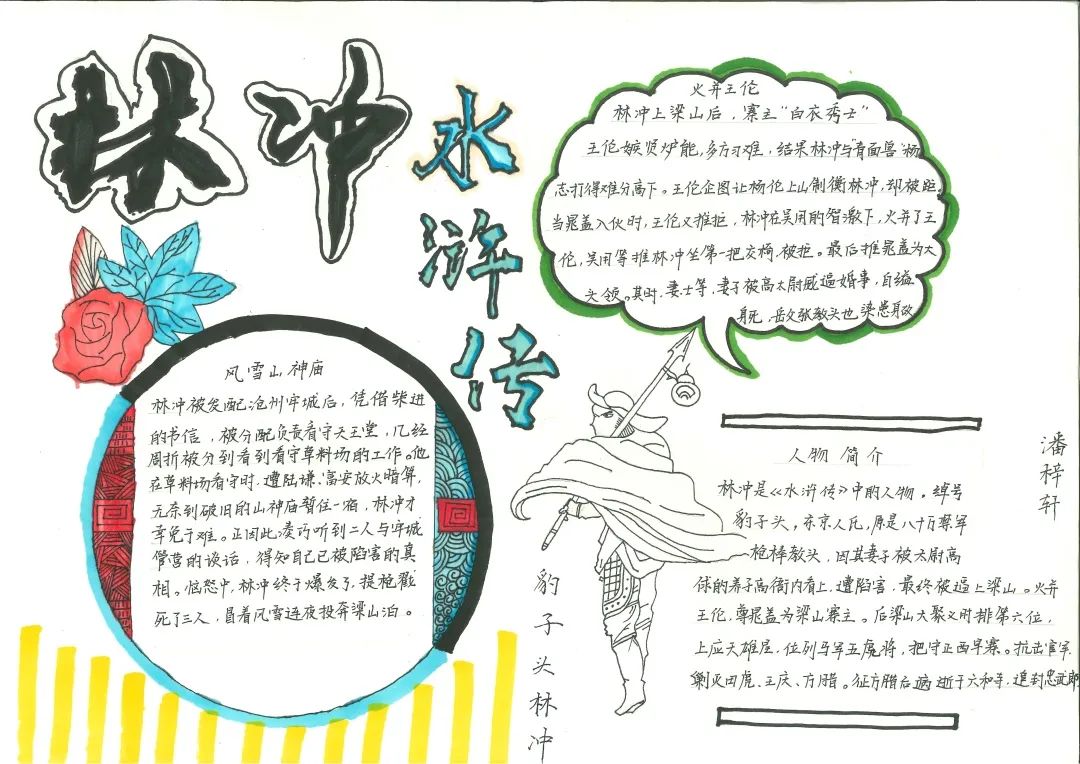 林冲
水浒传
火并王伦
林冲上梁山后，寨主“白衣秀士”
王伦嫉贤妒能，多方刁难，结果林冲与“青面兽”杨
志打得难分高下。王伦企图让杨伦上山制衡林冲，却被
当晁盖入伙时，王伦又推拒，林冲在吴用的智激下，火并了王
伦，吴用等推林冲坐第一把交椅，被拒。最后推晁盖为大
头领。其时，妻士等，妻子被高太尉威逼婚事，自缢
身死，岳父张教头也染患身故
风雪山神庙
林冲被发配沧州牢城后，凭借柴进
的书信，被分配负责看守天王堂，几经
周折被分到看到看守草料场的工作。他
在草料场看守时，遭陆谦、富安放火暗算，
无奈到破旧的山神庙暂住一宿，林冲才
幸免于难。正因此凑巧听到二人与牢城
管营的谈话，得知自己已被陷害的真
相。恼怒中，林冲终于爆发了，提枪戳
死了三人，冒着风雪连夜投奔梁山泊。
豹子头林冲
人物简介
林冲是《水浒传》中的人物。绰号
豹子头，东京人氏，原是八十万禁军
枪棒教头，因其妻子被太尉高
俅的养子高衙内看上，遭陷害，最终被逼上梁山。火并
王伦，尊晁盖为梁山寨主。后梁山大聚义时排第六位，
上应天雄星，位列马军五虎将，把守正西旱寨。抗击官军
剿灭田虎、王庆、方腊。征方腊后病逝于六和寺，追封忠武郎
潘梓轩